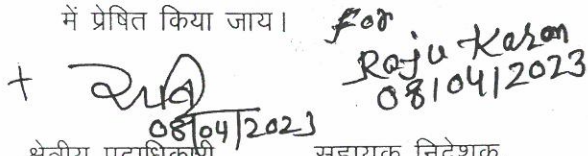 में प्रेषित किया जाय।
For
Raju Karan
08/04/2023
08/04/2023
क्षेत्रीय पदाधिकारी सहायक निदेशक